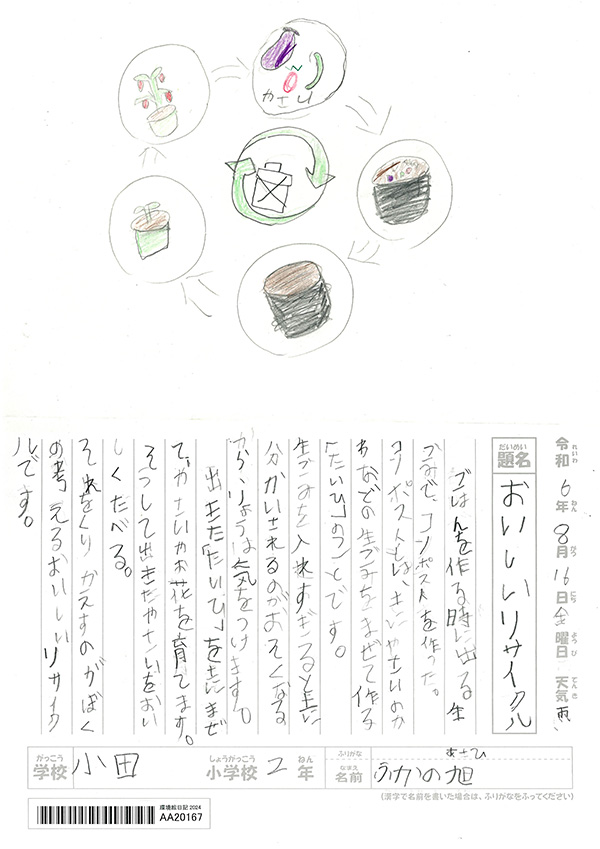 やさい
令和6年8月16日金曜日 天気 雨
れいわ ねん がつ にち ようび てんき
題名 おいしいリサイクル
だいめい
ごはんを作る時に出る生
ごみで、コンポストを作った。
コンポストとは、土にやさいのか
わなどの生ごみをまぜて作る
「たいひ」のことです。
生ごみを入れすぎると土に
分かいされるのがおそくなる
から、りょうは気をつけます。
出きた「たいひ」を土にまぜ
て、やさいやお花を育てます。
そうして出きたやさいをおい
しくたべる。
それをくりかえすのがぼく
の考えるおいしいリサイク
ルです。
がっこう
学校 小田
しょうがっこう
小学校 2年
ねん
ふりがな あさひ
なまえ
名前 ふかの旭
(漢字で名前を書いた場合は、ふりがなをふってください)
環境絵日記 2024
AA20167